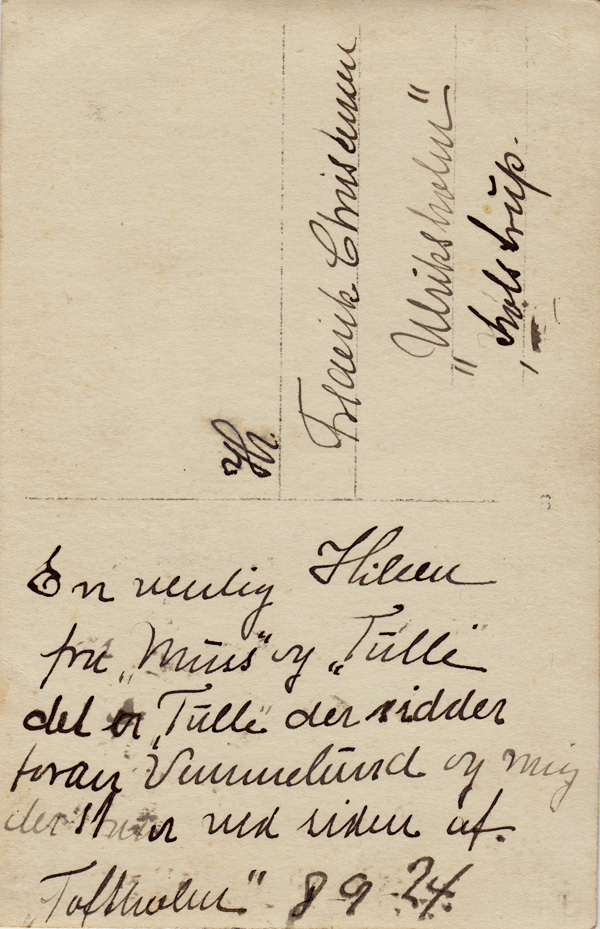 Hr.
Frederik Christensen
"Ulriksholm"
Kolstrup.
En venlig Hilsen
fra „Muss" og „Tulle"
det er „Tulle" der sidder
foran Vennelund og mig
der staar ved siden af.
„Toftholm" 8 9 24.